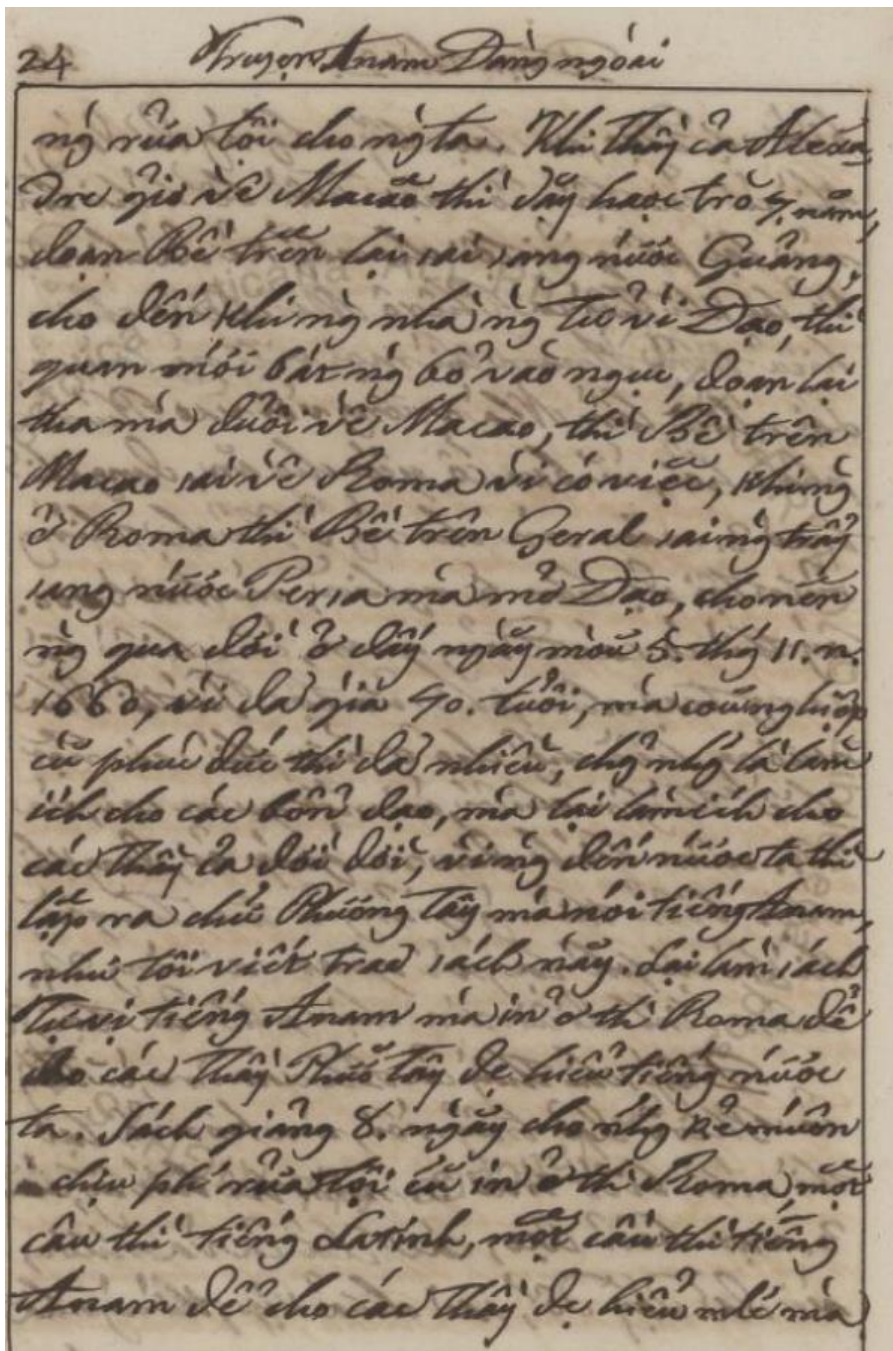 24 Truyện Anam Đàng ngoài
ng᷃ rửa tội cho ng᷃ ta. Khi Thầy cả Alexa
dre gio᷃ về Macao thì dậy haọc trò 7. năm,
đoạn Bề trên lại sai sang nước Quảng,
cho đến khi ng᷃ nhà ng᷃ Tư vối Đạo, thì
quan mới bát ng᷃ bỏ vào ngục, đoạn lại
tha mà đuổi về Macao, thì Bề trên
Macao sai về Roma vì có việc, khi ng᷃
ở Roma thì Bề trên Geral sai ng᷃ trẩy
sang nước Persia mà mở Đạo, cho nên
ng᷃ qua đời ở đấy ngày mòū 5. thg᷃ 11. n.
1660, vì đã già 70. tuổi, mà coũng
cũ phúc đức thì đã nhiều, chg᷃ nhg᷃ là làm
ích cho các bổn đạo, mà lại làm ích cho
các Thầy cả đời đời, vì ng᷃ đến nước ta thì
lập ra chữ Phương Tây mà nói tiếng Anam,
như tôi viết trao᷃ sách nầy. Lại làm sách
Tự vị tiếng Anam mà in ở th᷃ Roma để
cho các Thầy Phươ᷃ Tây dẹ hiểu tiếng nước
ta. Sách giảng 8. ngày cho nhg᷃ kẻ muốn
chịu phé᷃ rửa tội cũ in ở th᷃ Roma, một
câu thì tiếng Latinh, một câu thì tiếng
Anam để cho các Thầy dẹ hiểu mlẽ mà